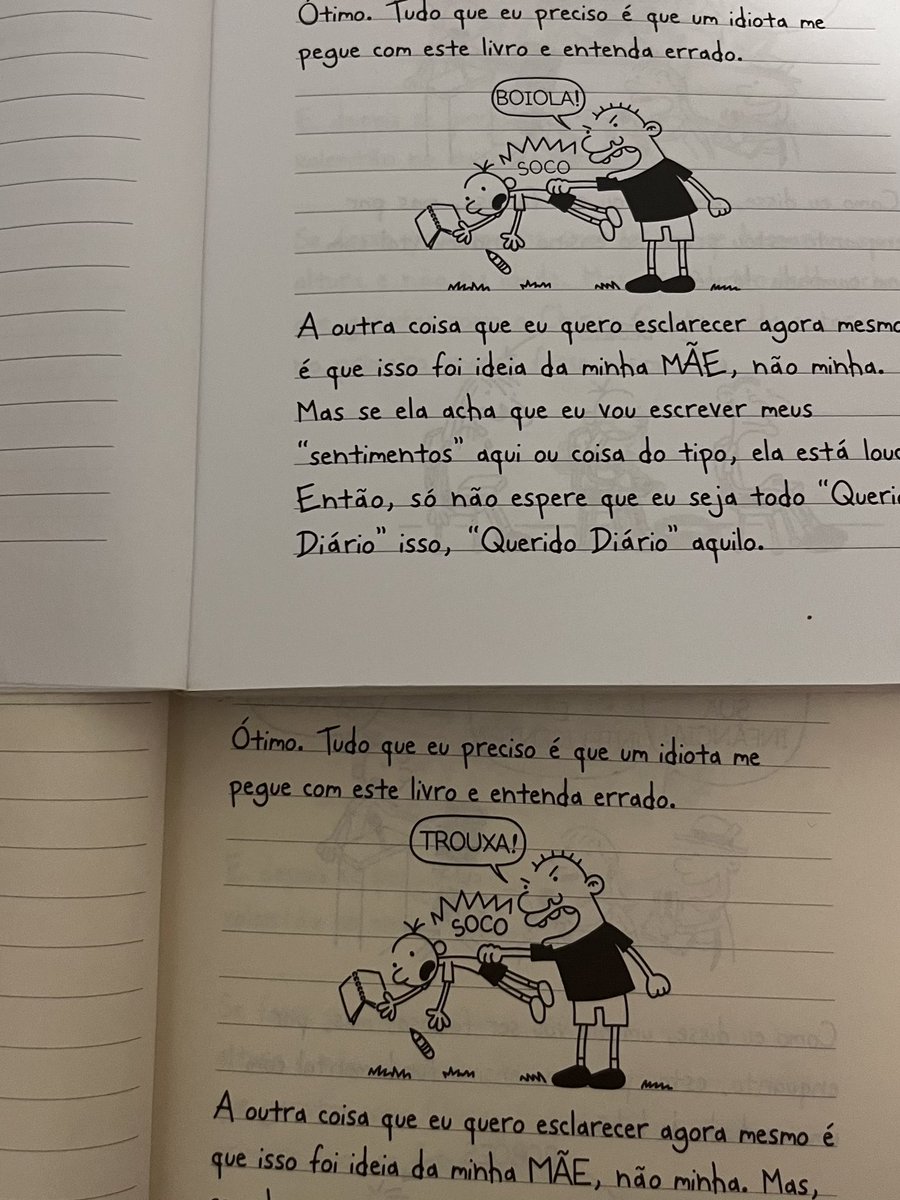 Ótimo. Tudo que eu preciso é que um idiota me
pegue com este livro e entenda errado.
BOIOLA!
SOCO
A outra coisa que eu quero esclarecer agora mesmo
é que isso foi ideia da minha MÃE, não minha.
Mas se ela acha que eu vou escrever meus
"sentimentos" aqui ou coisa do tipo, ela está
Então, só não espere que eu seja todo
Diário" isso, "Querido Diário" aquilo.
Ótimo. Tudo que eu preciso é que um idiota me
pegue com este livro e entenda errado.
TROUXA!
SOCO
A outra coisa que eu quero esclarecer agora mesmo é
que isso foi ideia da minha MÃE, não minha. Mas,